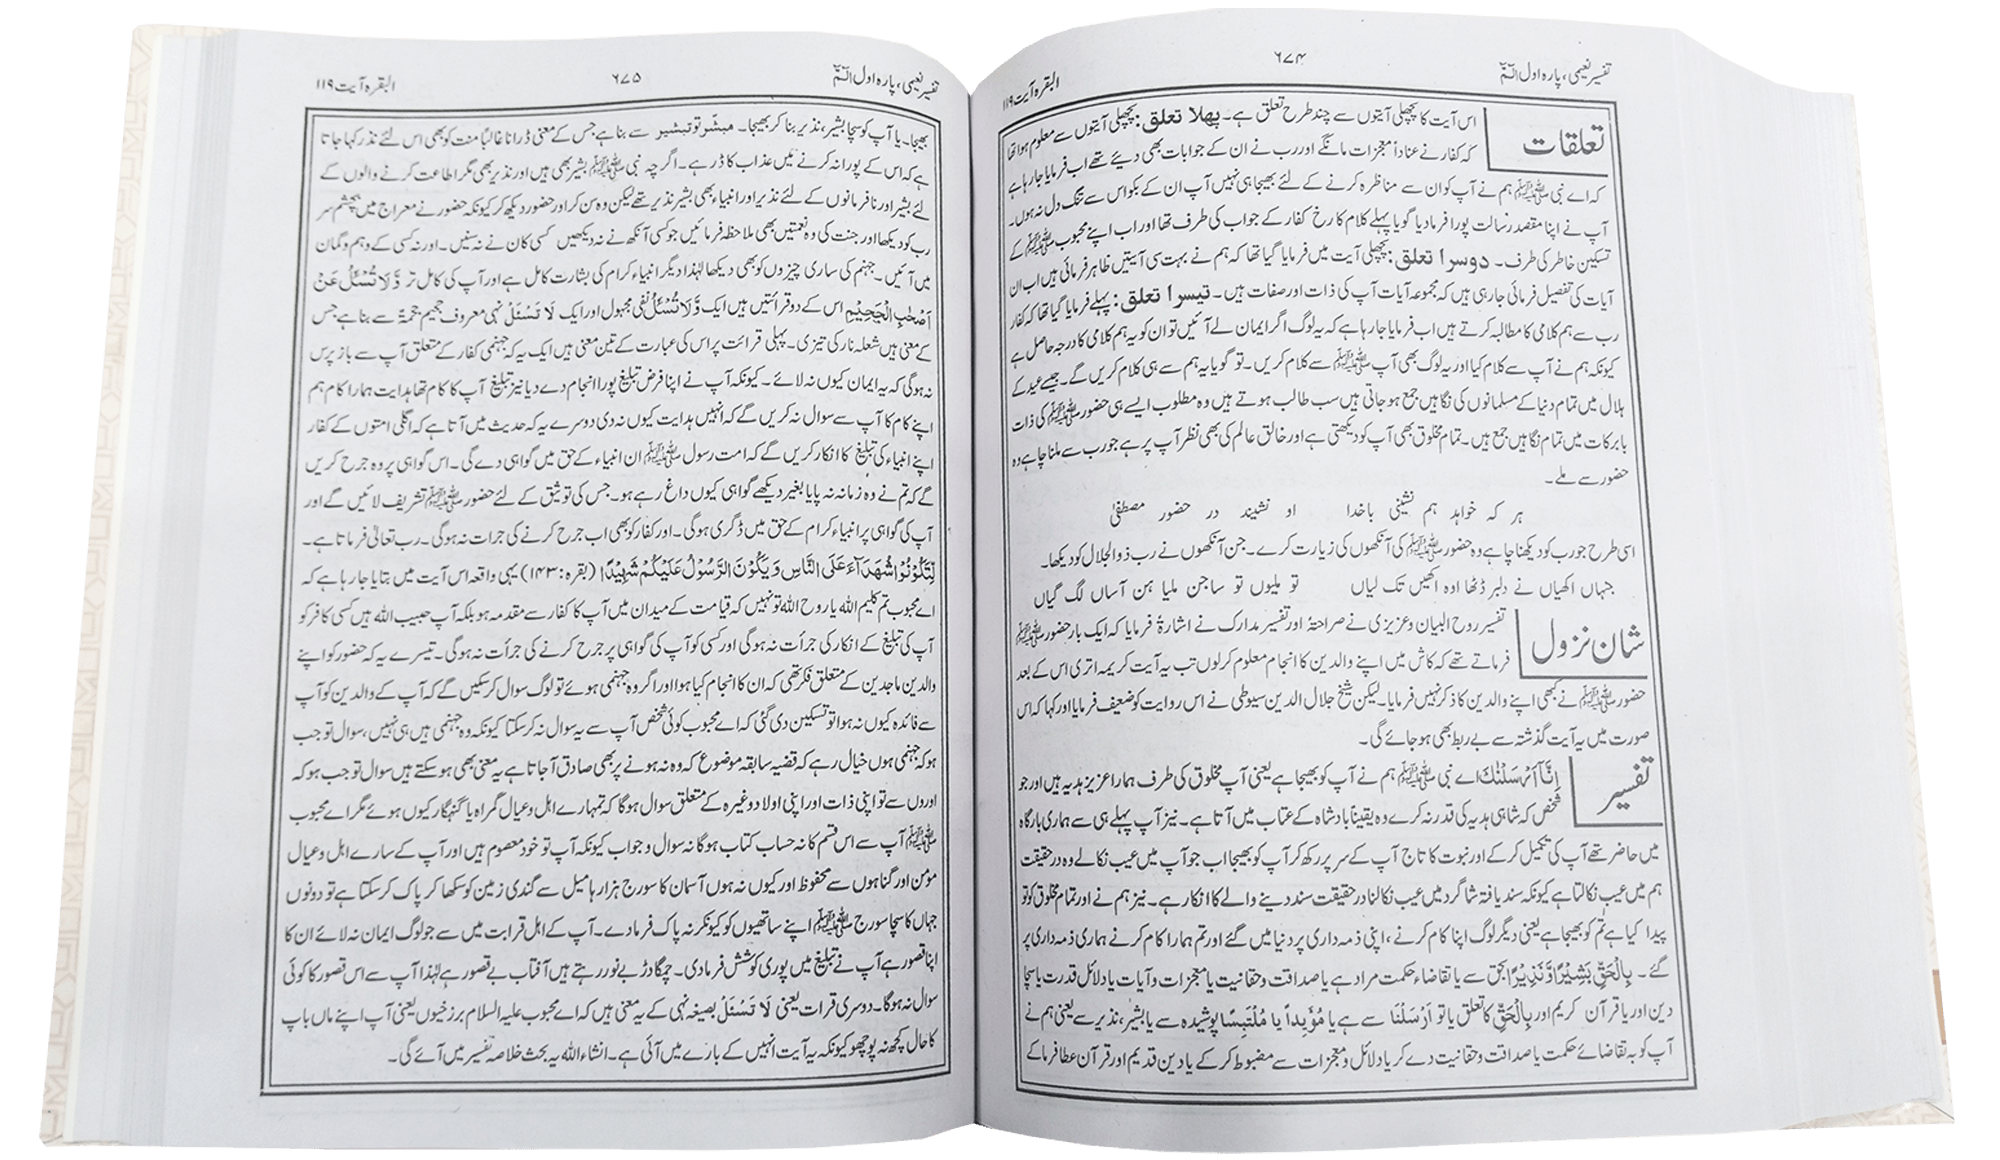 تفسیر نعیمی، پارہ اول الٓمّٓ
۶۷۴
البقرہ آیت ۱۱۹
تعلقات
اس آیت کا پچھلی آیتوں سے چند طرح تعلق ہے۔ پہلا تعلق: پچھلی آیتوں سے معلوم ہوا تھا
کہ کفار نے عناداً معجزات مانگے اور رب نے ان کے جوابات بھی دیئے تھے اب فرمایا جا رہا ہے
کہ اے نبی ﷺ ہم نے آپ کو ان سے مناظرہ کرنے کے لئے بھیجا ہی نہیں آپ ان کے بکواس سے تنگ دل نہ ہوں۔
آپ نے اپنا مقصد رسالت پورا فرما دیا گویا پہلے کلام کا رخ کفار کے جواب کی طرف تھا اور اب اپنے محبوب ﷺ کے
تسکین خاطر کی طرف۔ دوسرا تعلق: پچھلی آیت میں فرمایا گیا تھا کہ ہم نے بہت سی آیتیں ظاہر فرمائی ہیں اب ان
آیات کی تفصیل فرمائی جا رہی ہیں کہ مجموعہ آیات آپ کی ذات اور صفات ہیں۔ تیسرا تعلق: پہلے فرمایا گیا تھا کہ کفار
رب سے ہم کلامی کا مطالبہ کرتے ہیں اب فرمایا جا رہا ہے کہ یہ لوگ اگر ایمان لے آئیں تو ان کو یہ ہم کلامی کا درجہ حاصل ہے
کیونکہ ہم نے آپ سے کلام کیا اور یہ لوگ بھی آپ ﷺ سے کلام کریں۔ تو گویا یہ ہم سے ہی کلام کریں گے۔ جیسے عید کے
ہلال میں تمام دنیا کے مسلمانوں کی نگاہیں جمع ہو جاتی ہیں سب طالب ہوتے ہیں وہ مطلوب ایسے ہی حضور ﷺ کی ذات
بابرکات میں تمام نگاہیں جمع ہیں۔ تمام مخلوق بھی آپ کو دیکھتی ہے اور خالق عالم کی بھی نظر آپ پر ہے جو رب سے ملنا چاہے وہ
حضور سے ملے۔
ہر کہ خواہد ہم نشینی باخدا او نشیند در حضور مصطفیٰ
اسی طرح جو رب کو دیکھنا چاہے وہ حضور ﷺ کی آنکھوں کی زیارت کرے۔ جن آنکھوں نے رب ذوالجلال کو دیکھا۔
جہاں اکھیاں نے دلبر ڈٹھا اوہ اکھیں تک لیاں تو ملیوں تو ساجن ملیا ہن آساں لگ گیاں
شان نزول
تفسیر روح البیان و عزیزی نے صراحتۃً اور تفسیر مدارک نے اشارۃً فرمایا کہ ایک بار حضور ﷺ
فرماتے تھے کہ کاش میں اپنے والدین کا انجام معلوم کر لوں تب یہ آیت کریمہ اتری اس کے بعد
حضور ﷺ نے کبھی اپنے والدین کا ذکر نہیں فرمایا۔ لیکن شیخ جلال الدین سیوطی نے اس روایت کو ضعیف فرمایا اور کہا کہ اس
صورت میں یہ آیت گذشتہ سے بے ربط بھی ہو جائے گی۔
تفسیر
اِنَّاۤ اَرْسَلْنٰكَ اے نبی ﷺ ہم نے آپ کو بھیجا ہے یعنی آپ مخلوق کی طرف ہمارا عزیز ہدیہ ہیں اور جو
شخص کہ شاہی ہدیہ کی قدر نہ کرے وہ یقیناً بادشاہ کے عتاب میں آتا ہے۔ نیز آپ پہلے ہی سے ہماری بارگاہ
میں حاضر تھے آپ کی تکمیل کر کے اور نبوت کا تاج آپ کے سر پر رکھ کر آپ کو بھیجا اب جو آپ میں عیب نکالے وہ در حقیقت
ہم میں عیب نکالتا ہے کیونکہ سند یافتہ شاگرد میں عیب نکالنا در حقیقت سند دینے والے کا انکار ہے۔ نیز ہم نے اور تمام مخلوق کو تو
پیدا کیا ہے تم کو بھیجا ہے یعنی دیگر لوگ اپنا کام کرنے، اپنی ذمہ داری پر دنیا میں گئے اور تم ہمارا کام کرنے ہماری ذمہ داری پر
گئے۔ بِالْحَقِّ بَشِیْرًا وَّنَذِیْرًا الحق سے یا تقاضاء حکمت مراد ہے یا صداقت و حقانیت یا معجزات و آیات یا دلائل قدرت یا سچا
دین اور یا قرآن کریم اور بِالْحَقِّ کا تعلق یا تو اَرْسَلْنَا سے ہے یا مُؤَیِداً یا مُلْتَبِسًا پوشیدہ سے یا بشیر، نذیر سے یعنی ہم نے
آپ کو بہ تقاضائے حکمت یا صداقت و حقانیت دے کر یا دلائل و معجزات سے مضبوط کر کے یا دین قدیم اور قرآن عطا فرما کے
تفسیر نعیمی، پارہ اول الٓمّٓ
۶۷۵
البقرہ آیت ۱۱۹
بھیجا۔ یا آپ کو سچا بشیر، نذیر بنا کر بھیجا۔ مبشّر تو تبشیر سے بنا ہے جس کے معنی ڈرانا غالباً منت کو بھی اس لئے نذر کہا جاتا
ہے کہ اس کے پورا نہ کرنے میں عذاب کا ڈر ہے۔ اگر چہ نبی ﷺ بشیر بھی ہیں اور نذیر بھی مگر اطاعت کرنے والوں کے
لئے بشیر اور نافرمانوں کے لئے نذیر اور انبیاء بھی بشیر نذیر تھے لیکن وہ سن کر اور حضور دیکھ کر کیونکہ حضور نے معراج میں بچشم سر
رب کو دیکھا اور جنت کی وہ نعمتیں بھی ملاحظہ فرمائیں جو کسی آنکھ نے نہ دیکھیں کسی کان نے نہ سنیں۔ اور نہ کسی کے وہم و گمان
میں آئیں۔ جہنم کی ساری چیزوں کو بھی دیکھا لہٰذا دیگر انبیاء کرام کی بشارت کامل ہے اور آپ کی کامل تر وَّلَا تُسْئَلُ عَنْ
اَصْحٰبِ الْجَحِیْمِ اس کے دو قرائتیں ہیں ایک وَّلَا تُسْئَلُ نفی مجہول اور ایک لَا تَسْئَلْ نہی معروف جحیم جحمۃ سے بنا ہے جس
کے معنی ہیں شعلہ نار کی تیزی۔ پہلی قرائت پر اس کی عبارت کے تین معنی ہیں ایک یہ کہ جہنمی کفار کے متعلق آپ سے باز پرس
نہ ہو گی کہ یہ ایمان کیوں نہ لائے۔ کیونکہ آپ نے اپنا فرض تبلیغ پورا انجام دے دیا نیز تبلیغ آپ کا کام تھا ہدایت ہمارا کام ہم
اپنے کام کا آپ سے سوال نہ کریں گے کہ انہیں ہدایت کیوں نہ دی دوسرے یہ کہ حدیث میں آتا ہے کہ اگلی امتوں کے کفار
اپنے انبیاء کی تبلیغ کا انکار کریں گے کہ امت رسول ﷺ ان انبیاء کے حق میں گواہی دے گی۔ اس گواہی پر وہ جرح کریں
گے کہ تم نے وہ زمانہ نہ پایا بغیر دیکھے گواہی کیوں داغ رہے ہو۔ جس کی توثیق کے لئے حضور ﷺ تشریف لائیں گے اور
آپ کی گواہی پر انبیاء کرام کے حق میں ڈگری ہو گی۔ اور کفار کو بھی اب جرح کرنے کی جرات نہ ہو گی۔ رب تعالیٰ فرماتا ہے۔
لِتَكُوْنُوْا شُهَدَآءَ عَلَى النَّاسِ وَیَكُوْنَ الرَّسُوْلُ عَلَیْكُمْ شَهِیْدًا (بقرہ:۱۴۳) یہی واقعہ اس آیت میں بتایا جا رہا ہے کہ
اے محبوب تم کلیم اللہ یا روح اللہ تو نہیں کہ قیامت کے میدان میں آپ کا کفار سے مقدمہ ہو بلکہ آپ حبیب اللہ ہیں کسی کافر کو
آپ کی تبلیغ کے انکار کی جرأت نہ ہو گی اور کسی کو آپ کی گواہی پر جرح کرنے کی جرأت نہ ہو گی۔ تیسرے یہ کہ حضور کو اپنے
والدین ماجدین کے متعلق فکر تھی کہ ان کا انجام کیا ہوا اور اگر وہ جہنمی ہوئے تو لوگ سوال کر سکیں گے کہ آپ کے والدین کو آپ
سے فائدہ کیوں نہ ہوا تو تسکین دی گئی کہ اے محبوب کوئی شخص آپ سے یہ سوال نہ کر سکتا کیونکہ وہ جہنمی ہیں ہی نہیں، سوال تو جب
ہو کہ جہنمی ہوں خیال رہے کہ قضیہ سابقہ موضوع کہ وہ نہ ہونے پر بھی صادق آ جاتا ہے یہ معنی بھی ہو سکتے ہیں سوال تو جب ہو کہ
اوروں سے تو اپنی ذات اور اپنی اولاد وغیرہ کے متعلق سوال ہوگا کہ تمہارے اہل و عیال گمراہ یا گنہگار کیوں ہوئے مگر اے محبوب
ﷺ آپ سے اس قسم کا نہ حساب کتاب ہوگا نہ سوال و جواب کیونکہ آپ تو خود معصوم ہیں اور آپ کے سارے اہل و عیال
مؤمن اور گناہوں سے محفوظ اور کیوں نہ ہوں آسمان کا سورج ہزارہا میل سے گندی زمین کو سکھا کر پاک کر سکتا ہے تو دونوں
جہاں کا سچا سورج ﷺ اپنے ساتھیوں کو کیونکر نہ پاک فرما دے۔ آپ کے اہل قرابت میں سے جو لوگ ایمان نہ لائے ان کا
اپنا قصور ہے آپ نے تبلیغ میں پوری کوشش فرما دی۔ چمگادڑ بے نور رہتے ہیں آفتاب بے قصور ہے لہٰذا آپ سے اس قصور کا کوئی
سوال نہ ہوگا۔ دوسری قرات یعنی لَا تَسْئَلْ بصیغہ نہی کے یہ معنی ہیں کہ اے محبوب علیہ السلام برزخیوں یعنی آپ اپنے ماں باپ
کا حال کچھ نہ پوچھو کیونکہ یہ آیت انہیں کے بارے میں آئی ہے۔ انشاء اللہ یہ بحث خلاصہ تفسیر میں آئے گی۔